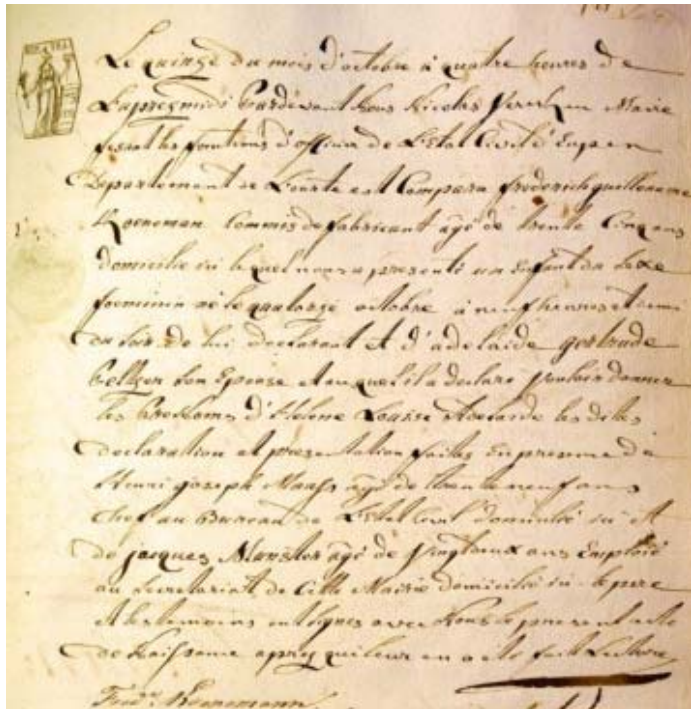 Le quinze du mois d'octobre à quatre heures de
L'apresmidi Pardevant Nous Nicolas Maire
fesant les fonctions d'officier de L'Etat Civil d'Eupen
Departement de L'ourte est Comparu frederich guillaume
Koeneman Commis de fabricant agé de trente Cinq ans
domicilié ici lequel nous a presenté un Enfant du Sexe
foeminin né le quatorze octobre à neuf heures et demi
du Soir de lui declarant et d'adelaide gertrude
Son Epouse et auquel il a declaré Vouloir donner
les Prenoms d'Helene Louise Adelaide les dites
declaration et presentation faites En presence de
Henri joseph Maass agé de trente neuf ans
Chef au Bureau de L'Etat Civil domicilié ici et
de jacques Munster agé de Vingt deux ans Emploié
au Secretariat de Cette Mairie domicilié ici le pere
et les temoins ont signés avec Nous le present acte
de Naissance après qu'il leur en a été fait Lecture
Fred. Koenemann